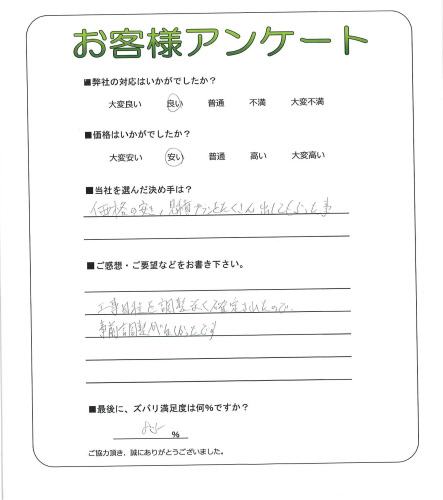 お客様アンケート
■弊社の対応はいかがでしたか？
大変良い 良い 普通 不満 大変不満
■価格はいかがでしたか？
大変安い 安い 普通 高い 大変高い
■当社を選んだ決め手は？
価格の安さ、見積プランをたくさん出してもらった事
■ご感想・ご要望などをお書き下さい。
工事日程を調整なく確定されたので、
事前調整がなかったです
■最後に、ズバリ満足度は何％ですか？
85 %
ご協力頂き、誠にありがとうございました。